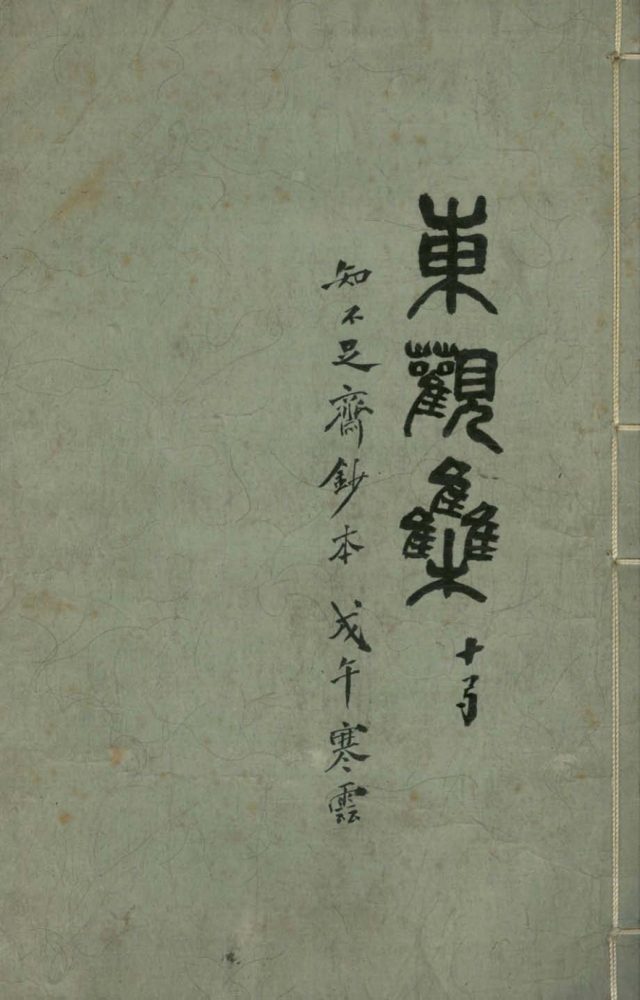 東觀雧十弓
知不足齋鈔本 戊午寒雲